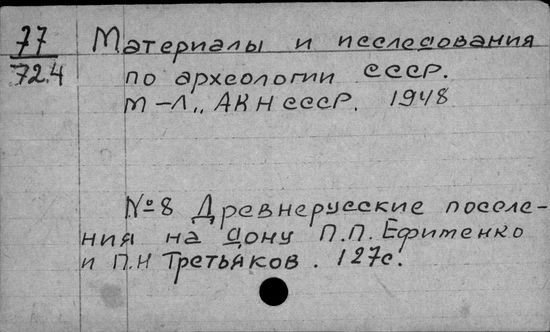 77 Материалы и исследования
72.4 по археологии СССР.
М-Л., АКН СССР. 1948
№8 Древнерусские поселе-
ния на Дону П.П. Ефименко
и П.Н Третьяков. 127с.